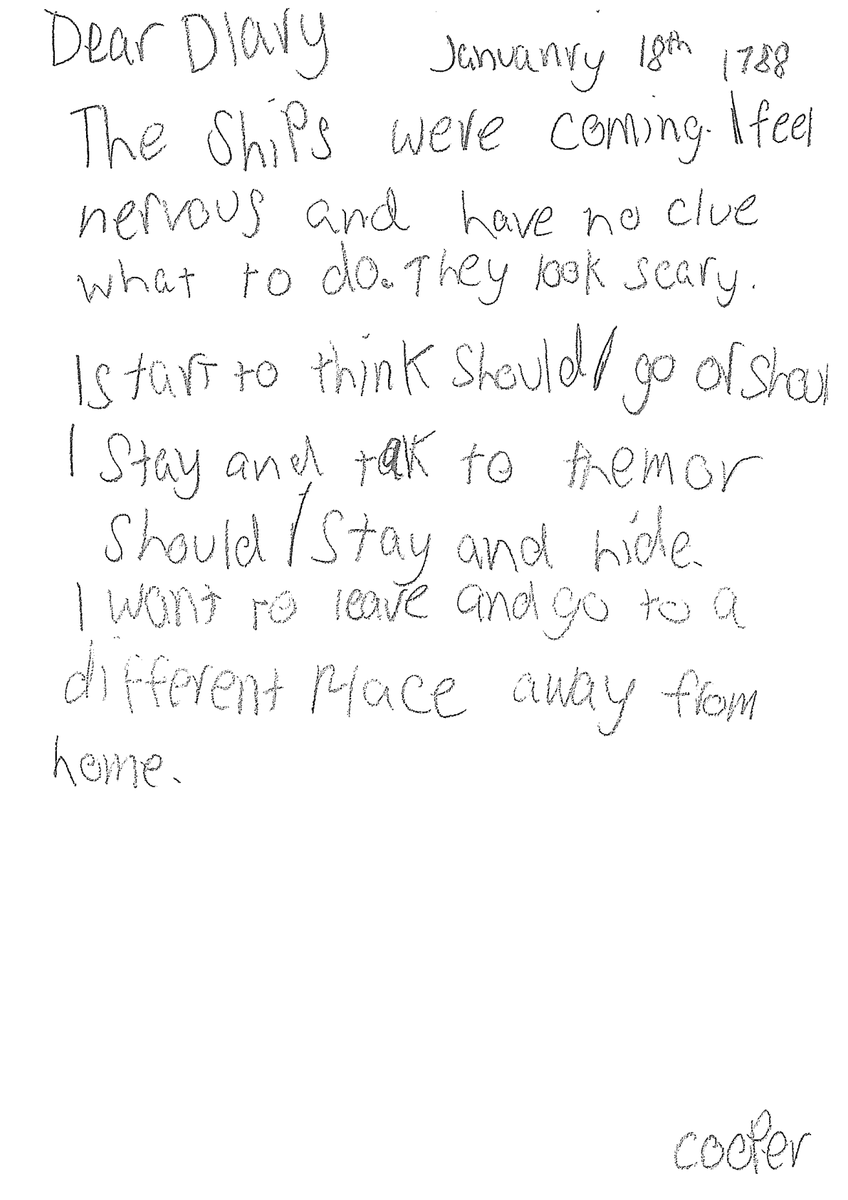 Dear Diary Januanry 18th 1788
The Ships were coming. I feel
nervous and have no clue
what to do. They look scary.
I start to think should I go or shoul
I stay and tak to them or
should I stay and hide.
I want to leave and go to a
different Place away from
home.
cooper